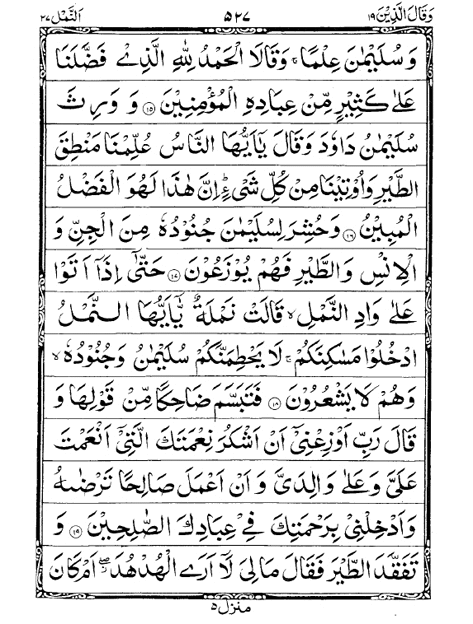 وَقَالَ الَّذِيْنَ ١٩ ٥٢٧ اَلنَّمْل ٢٧
وَسُلَيْمٰنَ عِلْمًا ۚ وَقَالَا الْحَمْدُ لِلّٰهِ الَّذِىْ فَضَّلَنَا
عَلٰى كَثِيْرٍ مِّنْ عِبَادِهِ الْمُؤْمِنِيْنَ ﴿١٥﴾ وَ وَرِثَ
سُلَيْمٰنُ دَاوٗدَ وَقَالَ يٰۤاَيُّهَا النَّاسُ عُلِّمْنَا مَنْطِقَ
الطَّيْرِ وَاُوْتِيْنَا مِنْ كُلِّ شَىْءٍ ؕ اِنَّ هٰذَا لَهُوَ الْفَضْلُ
الْمُبِيْنُ ﴿١٦﴾ وَحُشِرَ لِسُلَيْمٰنَ جُنُوْدُهٗ مِنَ الْجِنِّ وَ
الْاِنْسِ وَالطَّيْرِ فَهُمْ يُوْزَعُوْنَ ﴿١٧﴾ حَتّٰۤى اِذَاۤ اَتَوْا
عَلٰى وَادِ النَّمْلِ ۙ قَالَتْ نَمْلَةٌ يّٰۤاَيُّهَا النَّمْلُ
ادْخُلُوْا مَسٰكِنَكُمْ ۚ لَا يَحْطِمَنَّكُمْ سُلَيْمٰنُ وَجُنُوْدُهٗ ۙ
وَهُمْ لَا يَشْعُرُوْنَ ﴿١٨﴾ فَتَبَسَّمَ ضَاحِكًا مِّنْ قَوْلِهَا وَ
قَالَ رَبِّ اَوْزِعْنِىْۤ اَنْ اَشْكُرَ نِعْمَتَكَ الَّتِىْۤ اَنْعَمْتَ
عَلَىَّ وَعَلٰى وَالِدَىَّ وَ اَنْ اَعْمَلَ صَالِحًا تَرْضٰىهُ
وَاَدْخِلْنِىْ بِرَحْمَتِكَ فِىْ عِبَادِكَ الصّٰلِحِيْنَ ﴿١٩﴾ وَ
تَفَقَّدَ الطَّيْرَ فَقَالَ مَا لِىَ لَاۤ اَرَى الْهُدْهُدَ ۖ اَمْ كَانَ
منزل ٥